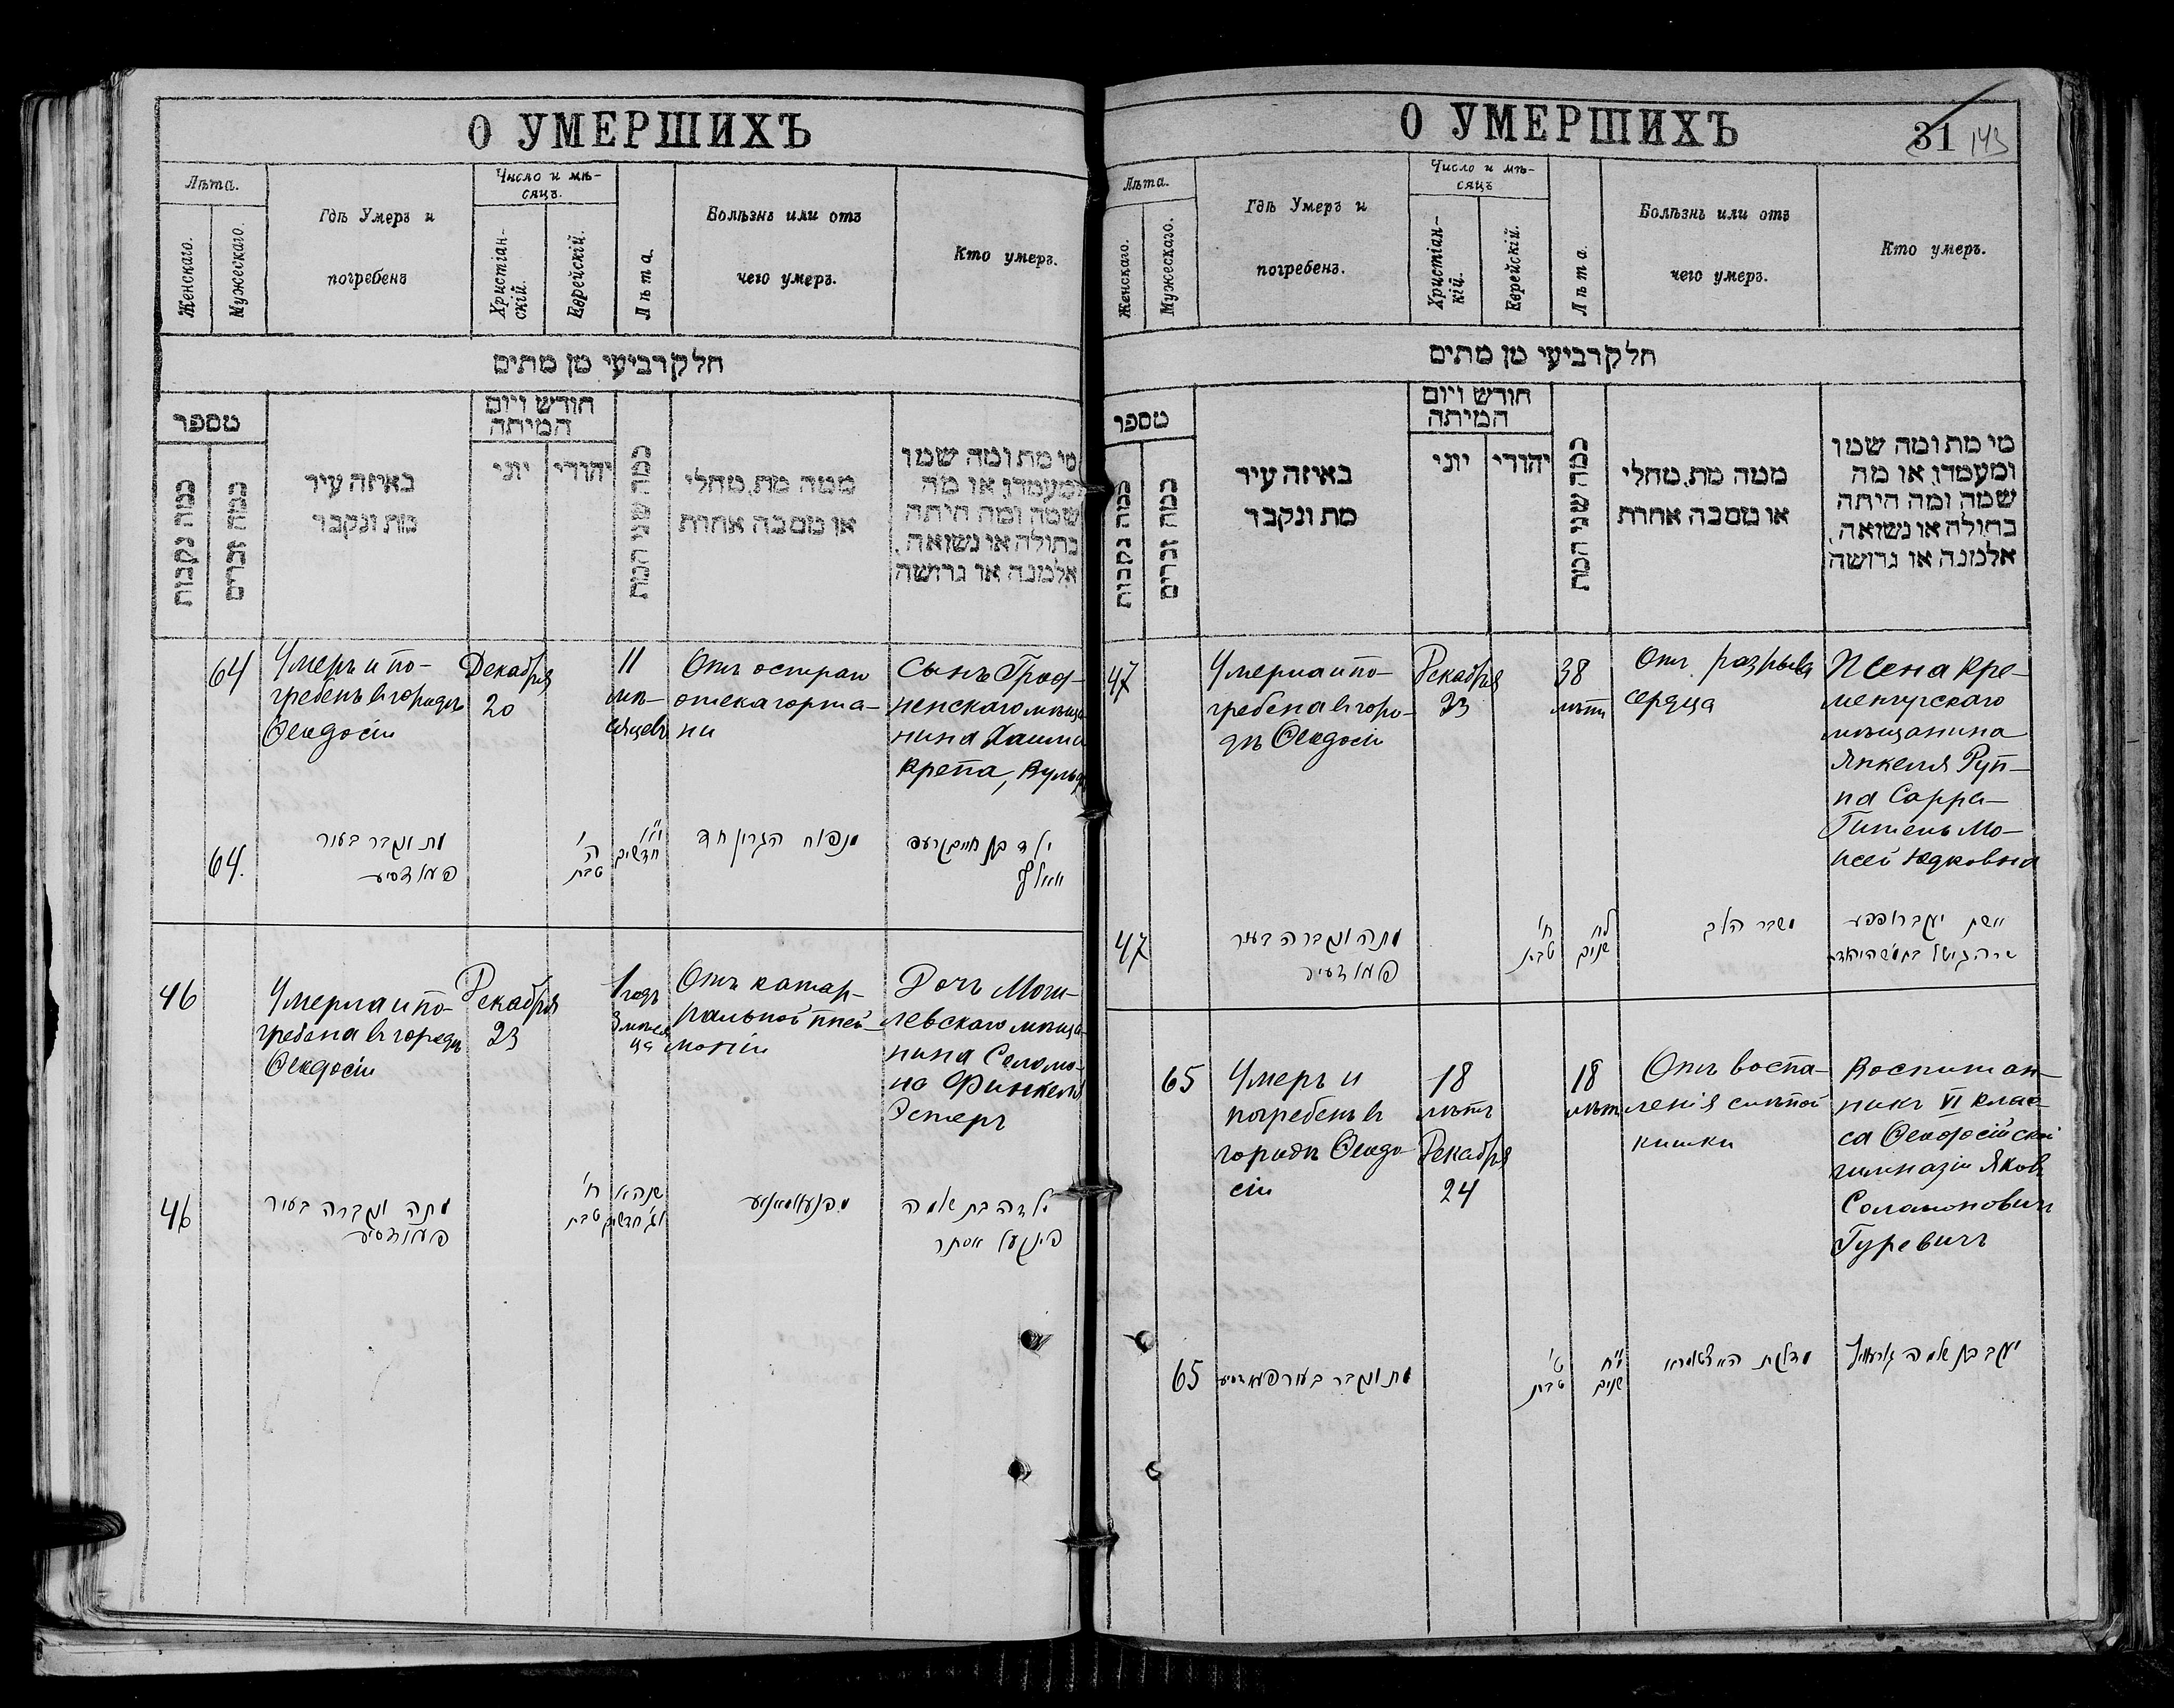 О УМЕРШИХЪ
Лѣта.
Женскаго.
Мужескаго.
Гдѣ Умеръ и
погребенъ
Число и мѣ-
сяцъ.
Христіан-
скій.
Еврейскій.
Лѣта.
Болѣзнь или отъ
чего умеръ.
Кто умеръ.
חלק רביעי מן מתים
מספר
כמה נקבות
כמה זכרים
באיזה עיר
מת ונקבר
חודש ויום
המיתה
יוני
יהודי
כמה שני המת
ממה מת, מחלי
או מסבה אחרת
מי מת ומה שמו
ומעמדו, או מה
שמה ומה היתה
בתולה או נשואה,
אלמנה או גרושה
64
Умеръ и по-
гребенъ въ городѣ
Ѳеодосіи
Декабря
20
11
мѣ-
сяцевъ
Отъ остраго
отека горта-
ни
Сынъ Грод-
ненскаго мѣща-
нина Хаима
64.
מת ונקבר בעיר
ה׳
טבת
י״א
חדשים
46
Умерла и по-
гребена въ городѣ
Ѳеодосіи
Декабря
23
1 годъ
3 мѣся
ца
Отъ катар-
ральной пнев-
моніи
Дочь Моги-
левскаго мѣща-
нина Соломо-
на Финкель
Эстеръ
46
מתה ונקברה בעיר
ח׳
טבת
שנה א׳
וג׳ חדשים
ילדה בת שלמה
פינקעל אסתר
О УМЕРШИХЪ
31 143
Лѣта.
Женскаго.
Мужескаго.
Гдѣ Умеръ и
погребенъ.
Число и мѣ-
сяцъ
Христіан-
кій.
Еврейскій.
Лѣта.
Болѣзнь или отъ
чего умеръ.
Кто умеръ.
חלק רביעי מן מתים
מספר
כמה נקבות
כמה זכרים
באיזה עיר
מת ונקבר
חודש ויום
המיתה
יוני
יהודי
כמה שני המת
ממה מת, מחלי
או מסבה אחרת
מי מת ומה שמו
ומעמדו, או מה
שמה ומה היתה
בתולה או נשואה,
אלמנה או גרושה
47
Умерла и по-
гребена въ горо-
дѣ Ѳеодосіи
Декабря
23
38
лѣтъ
Отъ разрыва
сердца
Жена Кре-
менчугскаго
мѣщанина
Янкеля Руп-
па Сарра-
Гитель Мо-
исей Юдковна
47
מתה ונקברה בעיר
ח׳
טבת
לח
שנים
משבר הלב
65
Умеръ и
погребенъ въ
городѣ Ѳеодо
сіи
18
лѣтъ
Декабря
24
18
лѣтъ
Отъ воспа-
ленія слѣпой
кишки
Воспитан-
никъ VI клас-
са Ѳеодосійской
гимназіи Яковъ
Соломоновичъ
Гуревичъ
65
מת ונקבר בעיר
ט׳
טבת
י״ח
שנים
יעקב בן שלמה גורעוויץ